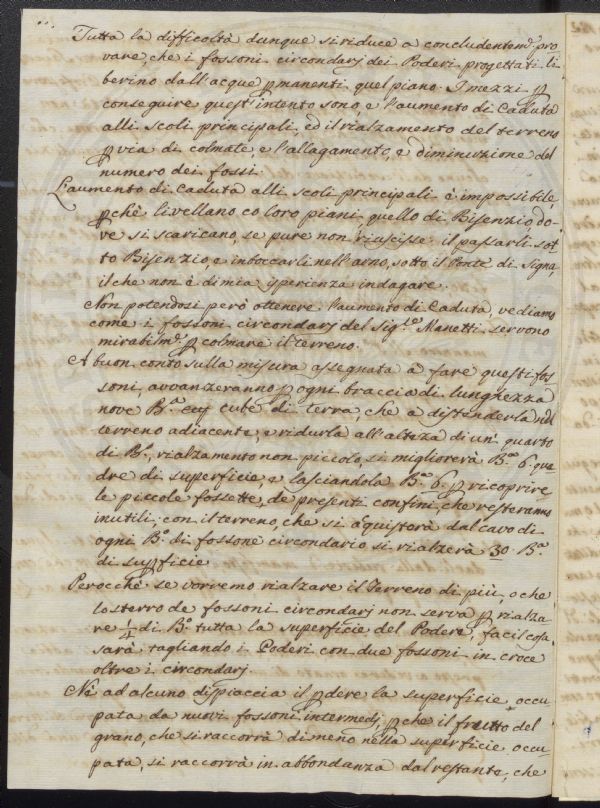 Tutta la difficoltà dunque si riduce a concludentem.e pro-
vare, che i fossoni circondarj dei Poderi progettati li-
berino dall'acque pmanenti quel piano. I mezzi p
conseguire quest'intento sono, e l'aumento di Caduta
alli scoli principali, ed il rialzamento del terreno
p via di colmate, e l'allagamento, e diminuzione del
numero dei fossi.
L'aumento di Caduta alli scoli principali è impossibile,
pchè livellano co loro piani, quello di Bisenzio, do-
ve si scaricano, se pure non riuscisse il passarli sot-
to Bisenzio, e inboccarli nell'arno, sotto il Ponte di Signa,
il che non è di mia sperienza indagare.
Non potendosi però ottenere l'aumento di Caduta, vediamo
come i fossoni circondarj del Sig.re Manetti servono
mirabilm.e p colmare il terreno.
A buon conto sulla misura assegnata a fare questi fos-
soni, avvanzeranno p ogni braccia di lunghezza
nove B.a cube di terra, che a distenderla nel
terreno adiacente, e ridurla all'alteza di un quarto
di B.o, rialzamento non piccolo, si migliorerà B.a 6. qua-
dre di superficie, e lasciandola B.a 6. p ricoprire
le piccole fossette, de presenti confini, che resteranno
inutili; con il terreno, che si aquisterà dal cavo di
ogni B.o di fossone circondario si rialzerà 30. B.a
di supficie
Perocchè se vorremo rialzare il Terreno di più, o che
lo sterro de fossoni circondarj non serva p rialza-
re 1/4 di B.o tutta la superficie del Podere, facil cosa
sarà tagliando i Poderi con due fossoni in croce
oltre i circondarj.
Nè ad alcuno dispiaccia il pdere la superficie occu-
pata da nuovi fossoni intermedj, pchè il frutto del
grano, che si raccorrà di meno nella superficie occu-
pata, si raccorrà in abbondanza dal restante, che